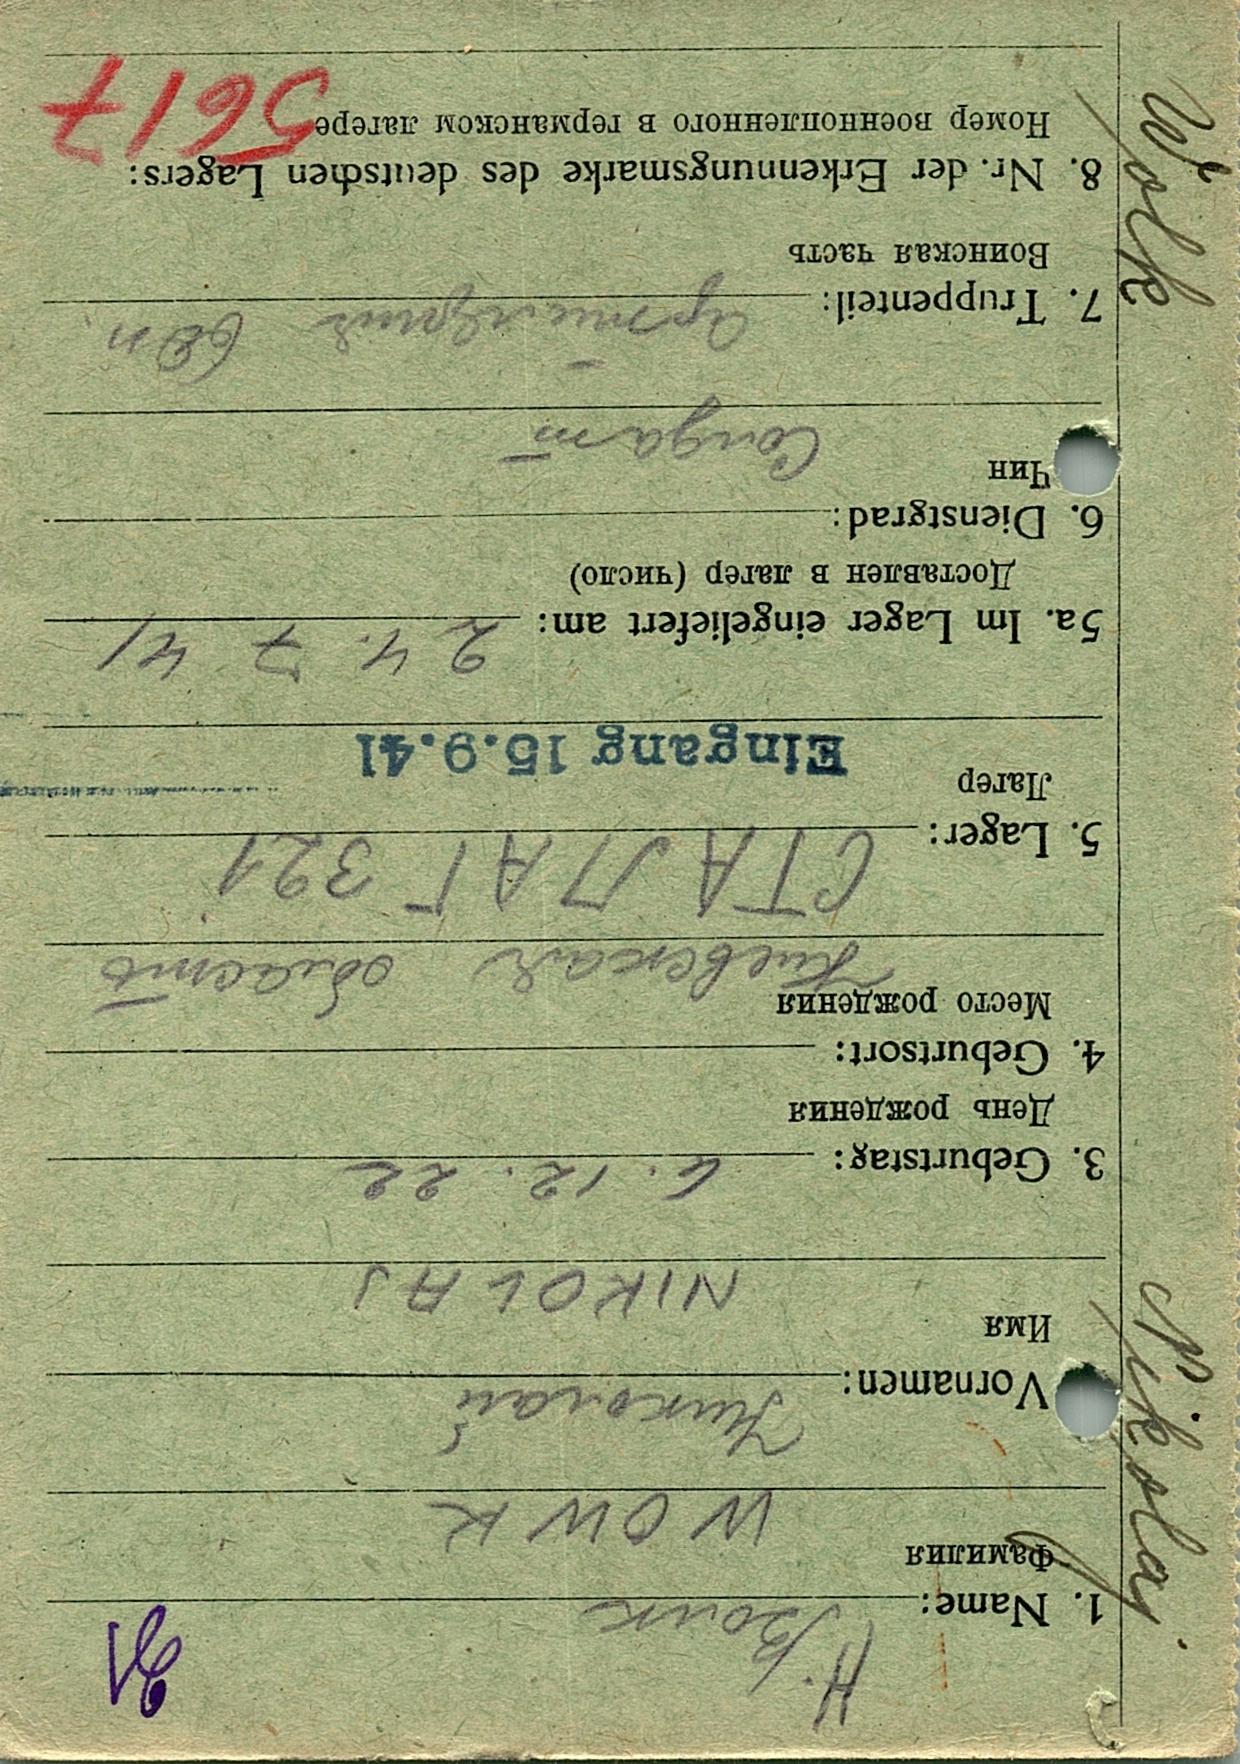 Н. Волк
1. Name:
Фамилия
WOWK
Николай
Vornamen:
Имя
NIKOLAJ
3. Geburtstag: 6. 12. 22
День рождения
4. Geburtsort:
Место рождения
Киевская область
5. Lager: СТАЛАГ 321
Лагерь
Eingang 15.9.41
5a. Im Lager eingeliefert am: 24. 7 41
Доставлен в лагер (число)
6. Dienstgrad:
Чин
Солдат
7. Truppenteil: Артилерия
Воинская часть
8. Nr. der Erkennungsmarke des deutschen Lagers:
Номер военнопленного в германском лагере
5617
Wolk
Nikolaj